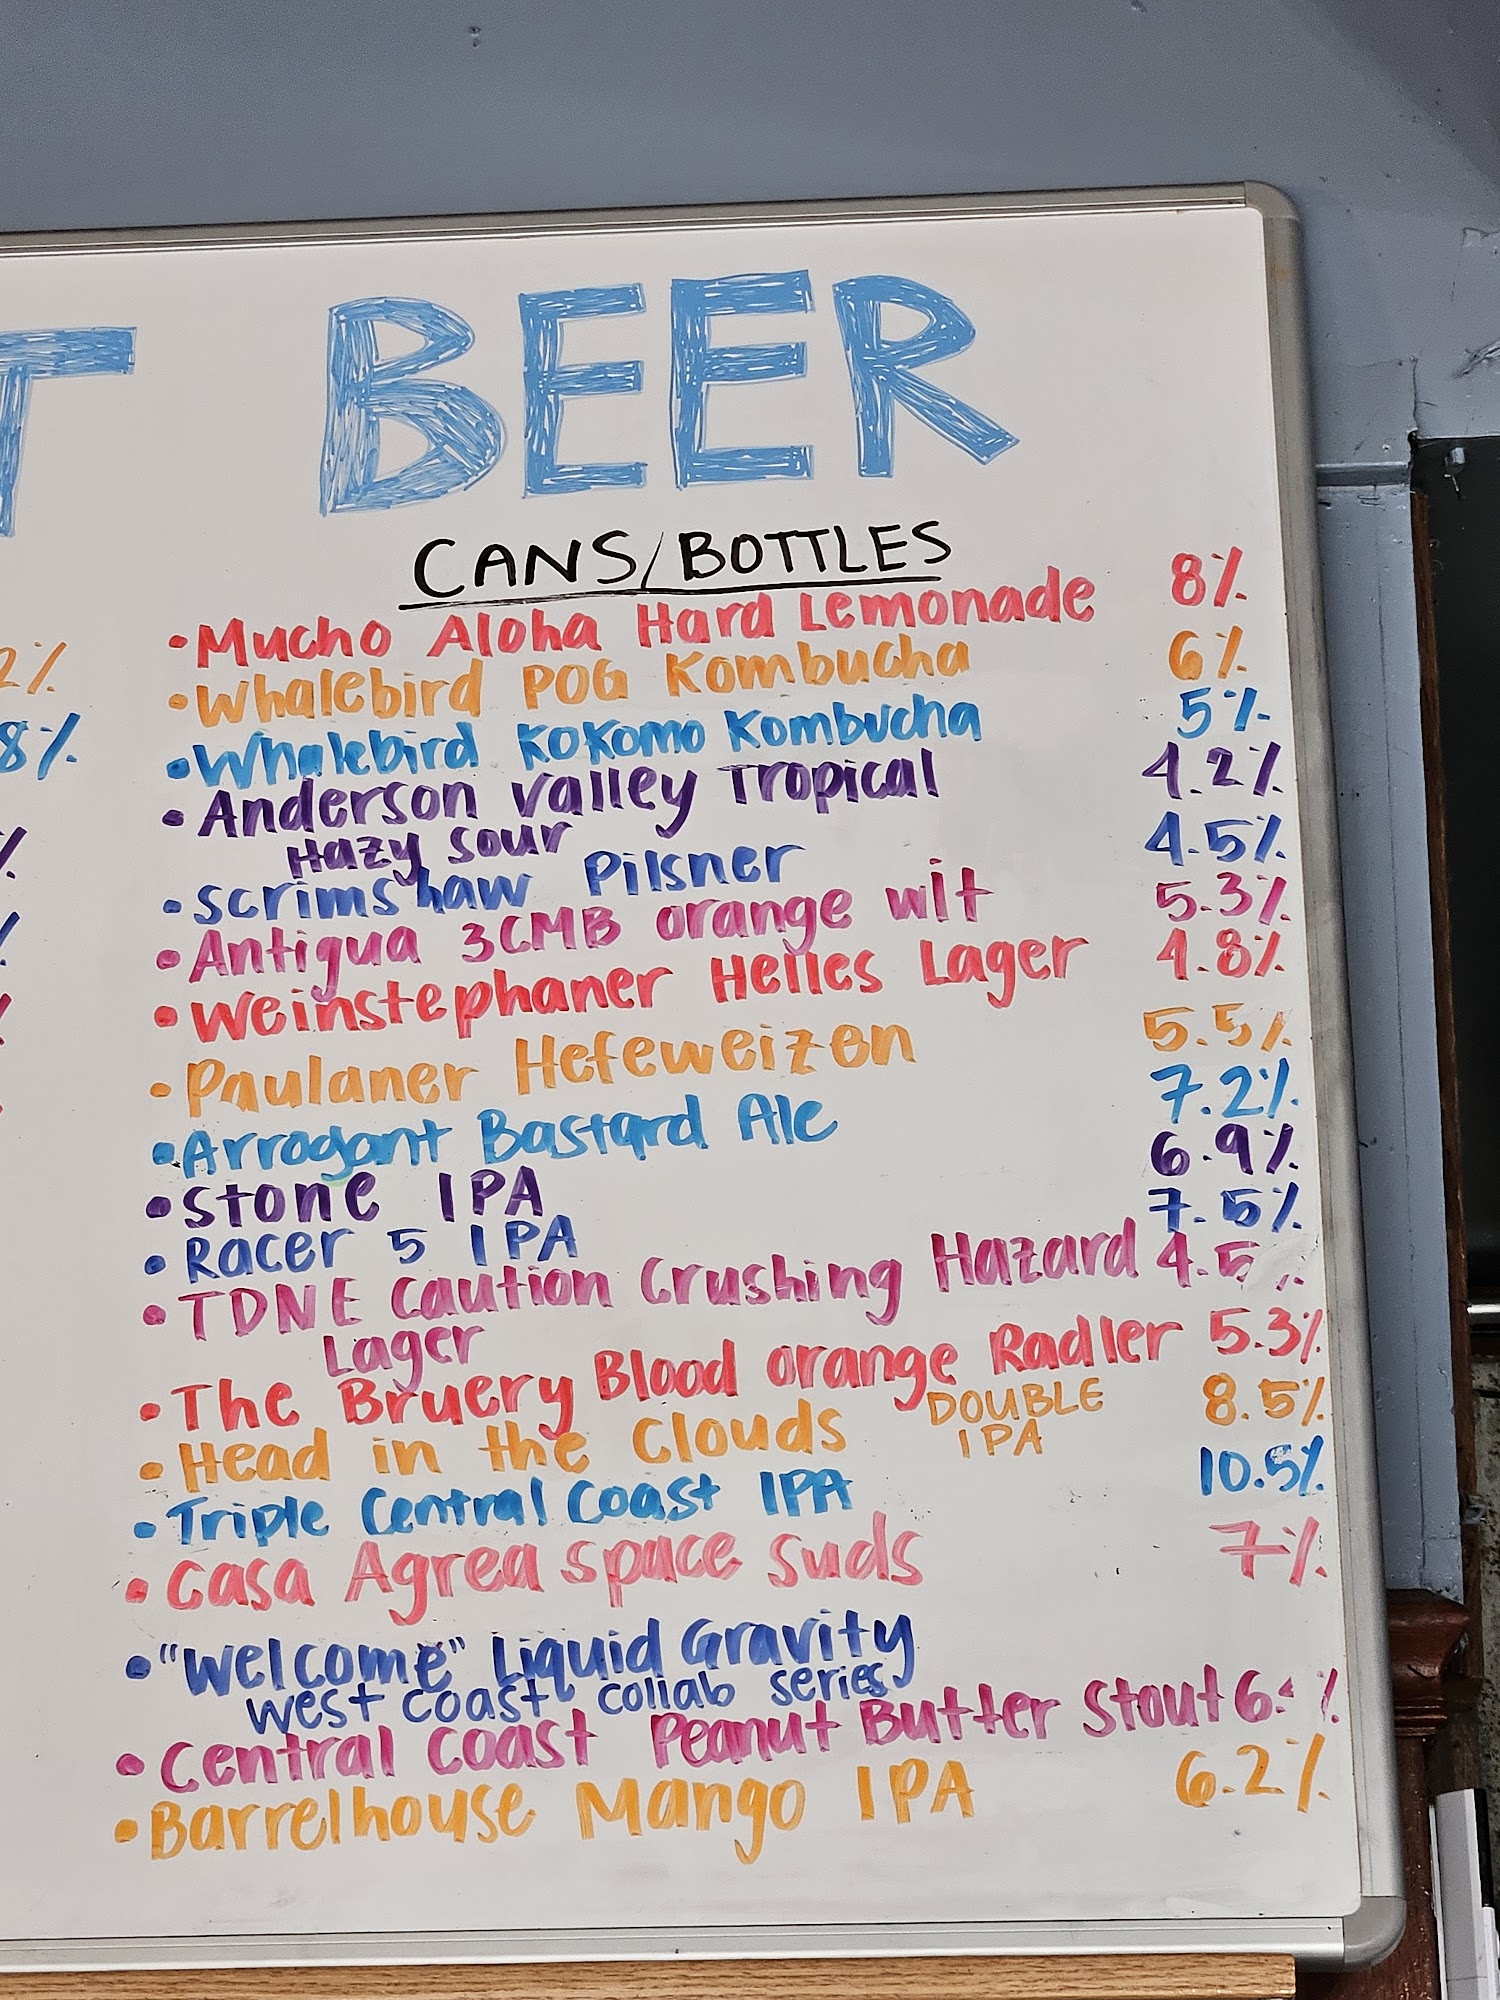 T BEER
CANS/BOTTLES
• Mucho Aloha Hard Lemonade 8%
• Whalebird POG Kombucha 6%
• Whalebird KOKOMO Kombucha 5%
• Anderson Valley Tropical 4.2%
Hazy Sour
• Scrimshaw Pilsner 4.5%
• Antigua 3CMB orange wit 5.3%
• Weinstephaner Helles Lager 4.8%
• Paulaner Hefeweizen 5.5%
• Arrogant Bastard Ale 7.2%
• Stone IPA 6.9%
• Racer 5 IPA 7.5%
• TDNE Caution Crushing Hazard 4.5
Lager
• The Bruery Blood orange Radler 5.3%
• Head in the Clouds DOUBLE 8.5%
IPA
• Triple Central Coast IPA 10.5%
• Casa Agrea space suds 7%
• "Welcome" Liquid Gravity
West coast collab series
• Central Coast Peanut Butter Stout 6. %
• Barrelhouse Mango IPA 6.2%
2%
8%
%